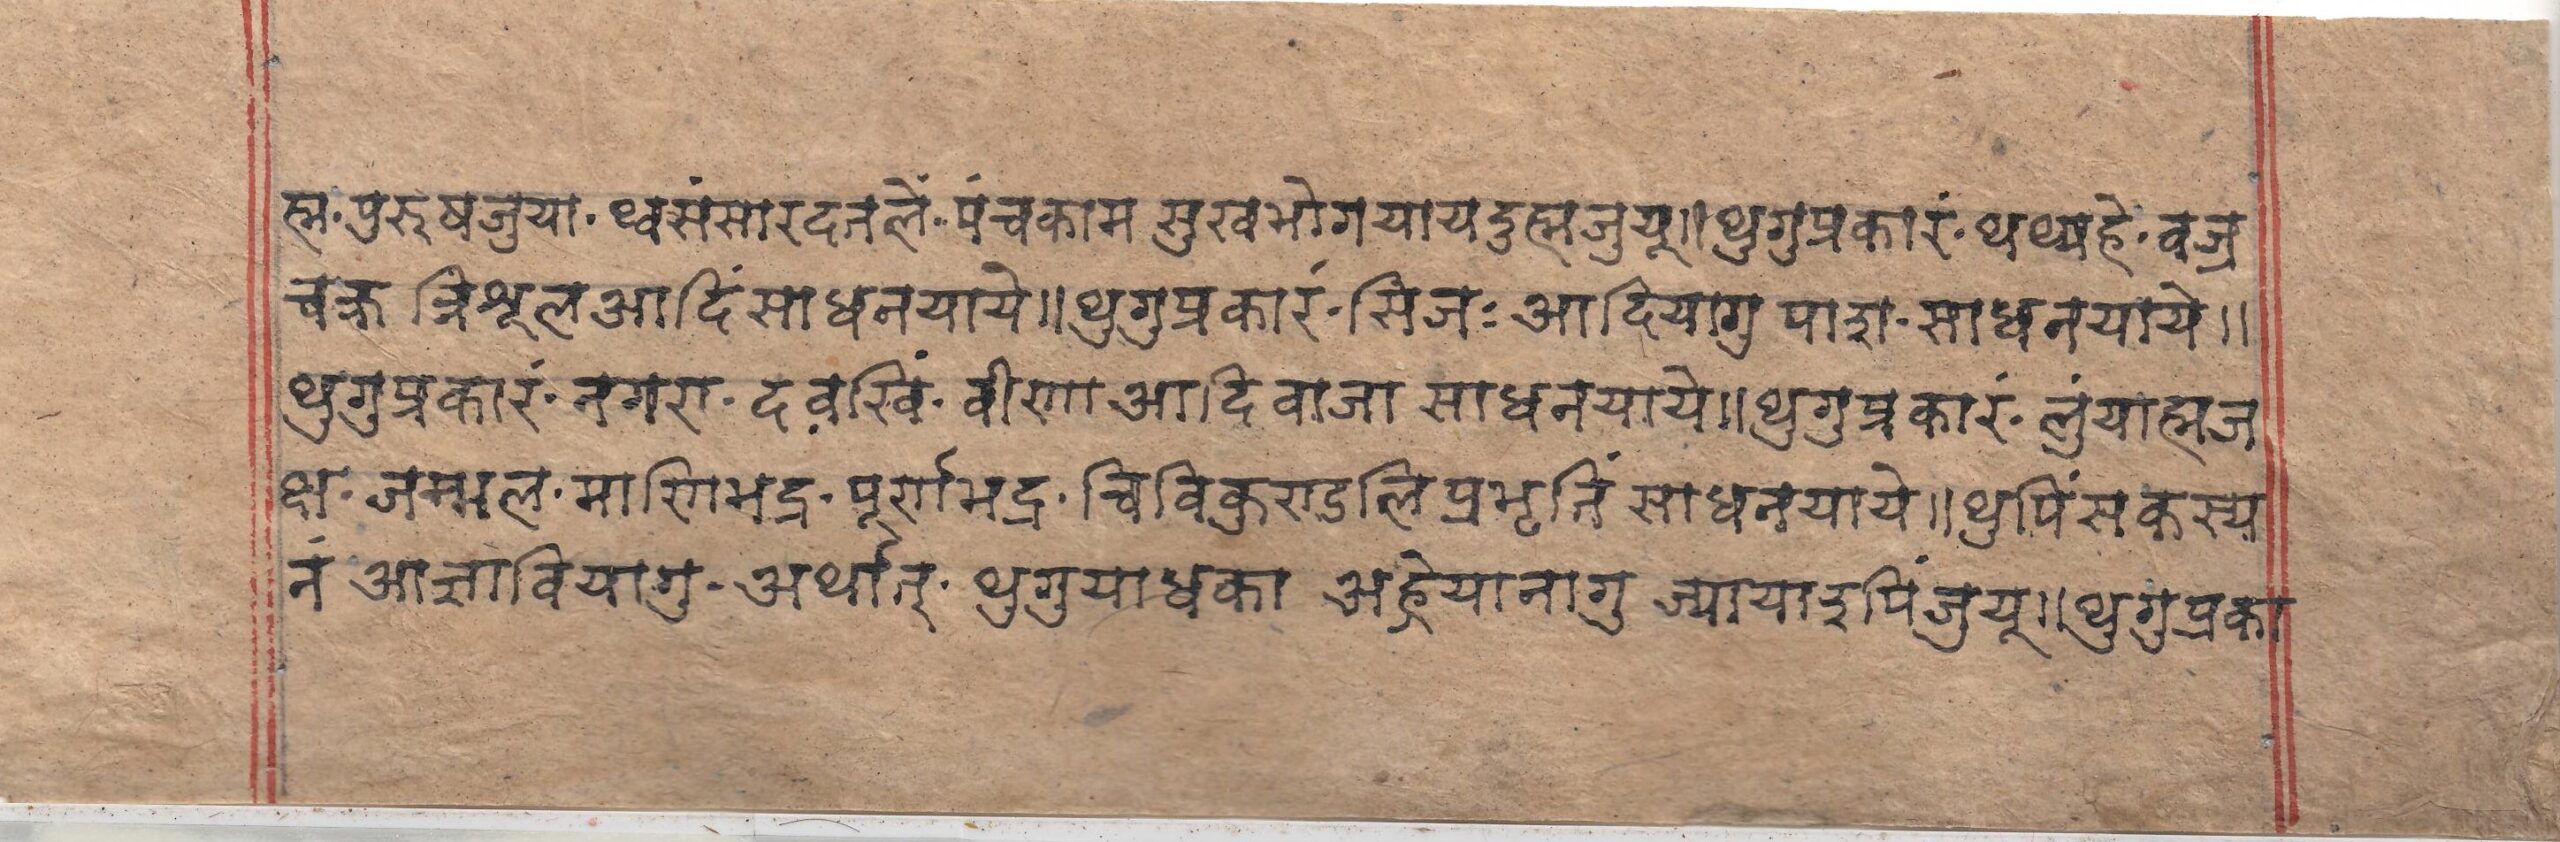 ह्म· पुरुषजुया· थ्वसंसारदतलें· पंचकाम सुखभोगयायदुह्मजुयू॥ थुगुप्रकारं· थथ्यहे· वज्र
चक्र त्रिशूलआदिंसाधनयाये॥ थुगुप्रकारं· सिजः आदियागु पाश· साधनयाये॥
थुगुप्रकारं· नगरा· दबखिं· वीणा आदि वाजा साधनयाये॥ थुगुप्रकारं· लुंयाह्मज
क्ष· जम्भल· माणिभद्र· पूर्णभद्र· चिविकुण्डलि प्रभृतिं साधनयाये॥ थुपिंसकस्य
नं आज्ञावियागु· अर्थात्· थुगुयाधका अह्रेयानागु ज्यायाइपिंजुयू॥ थुगुप्रका